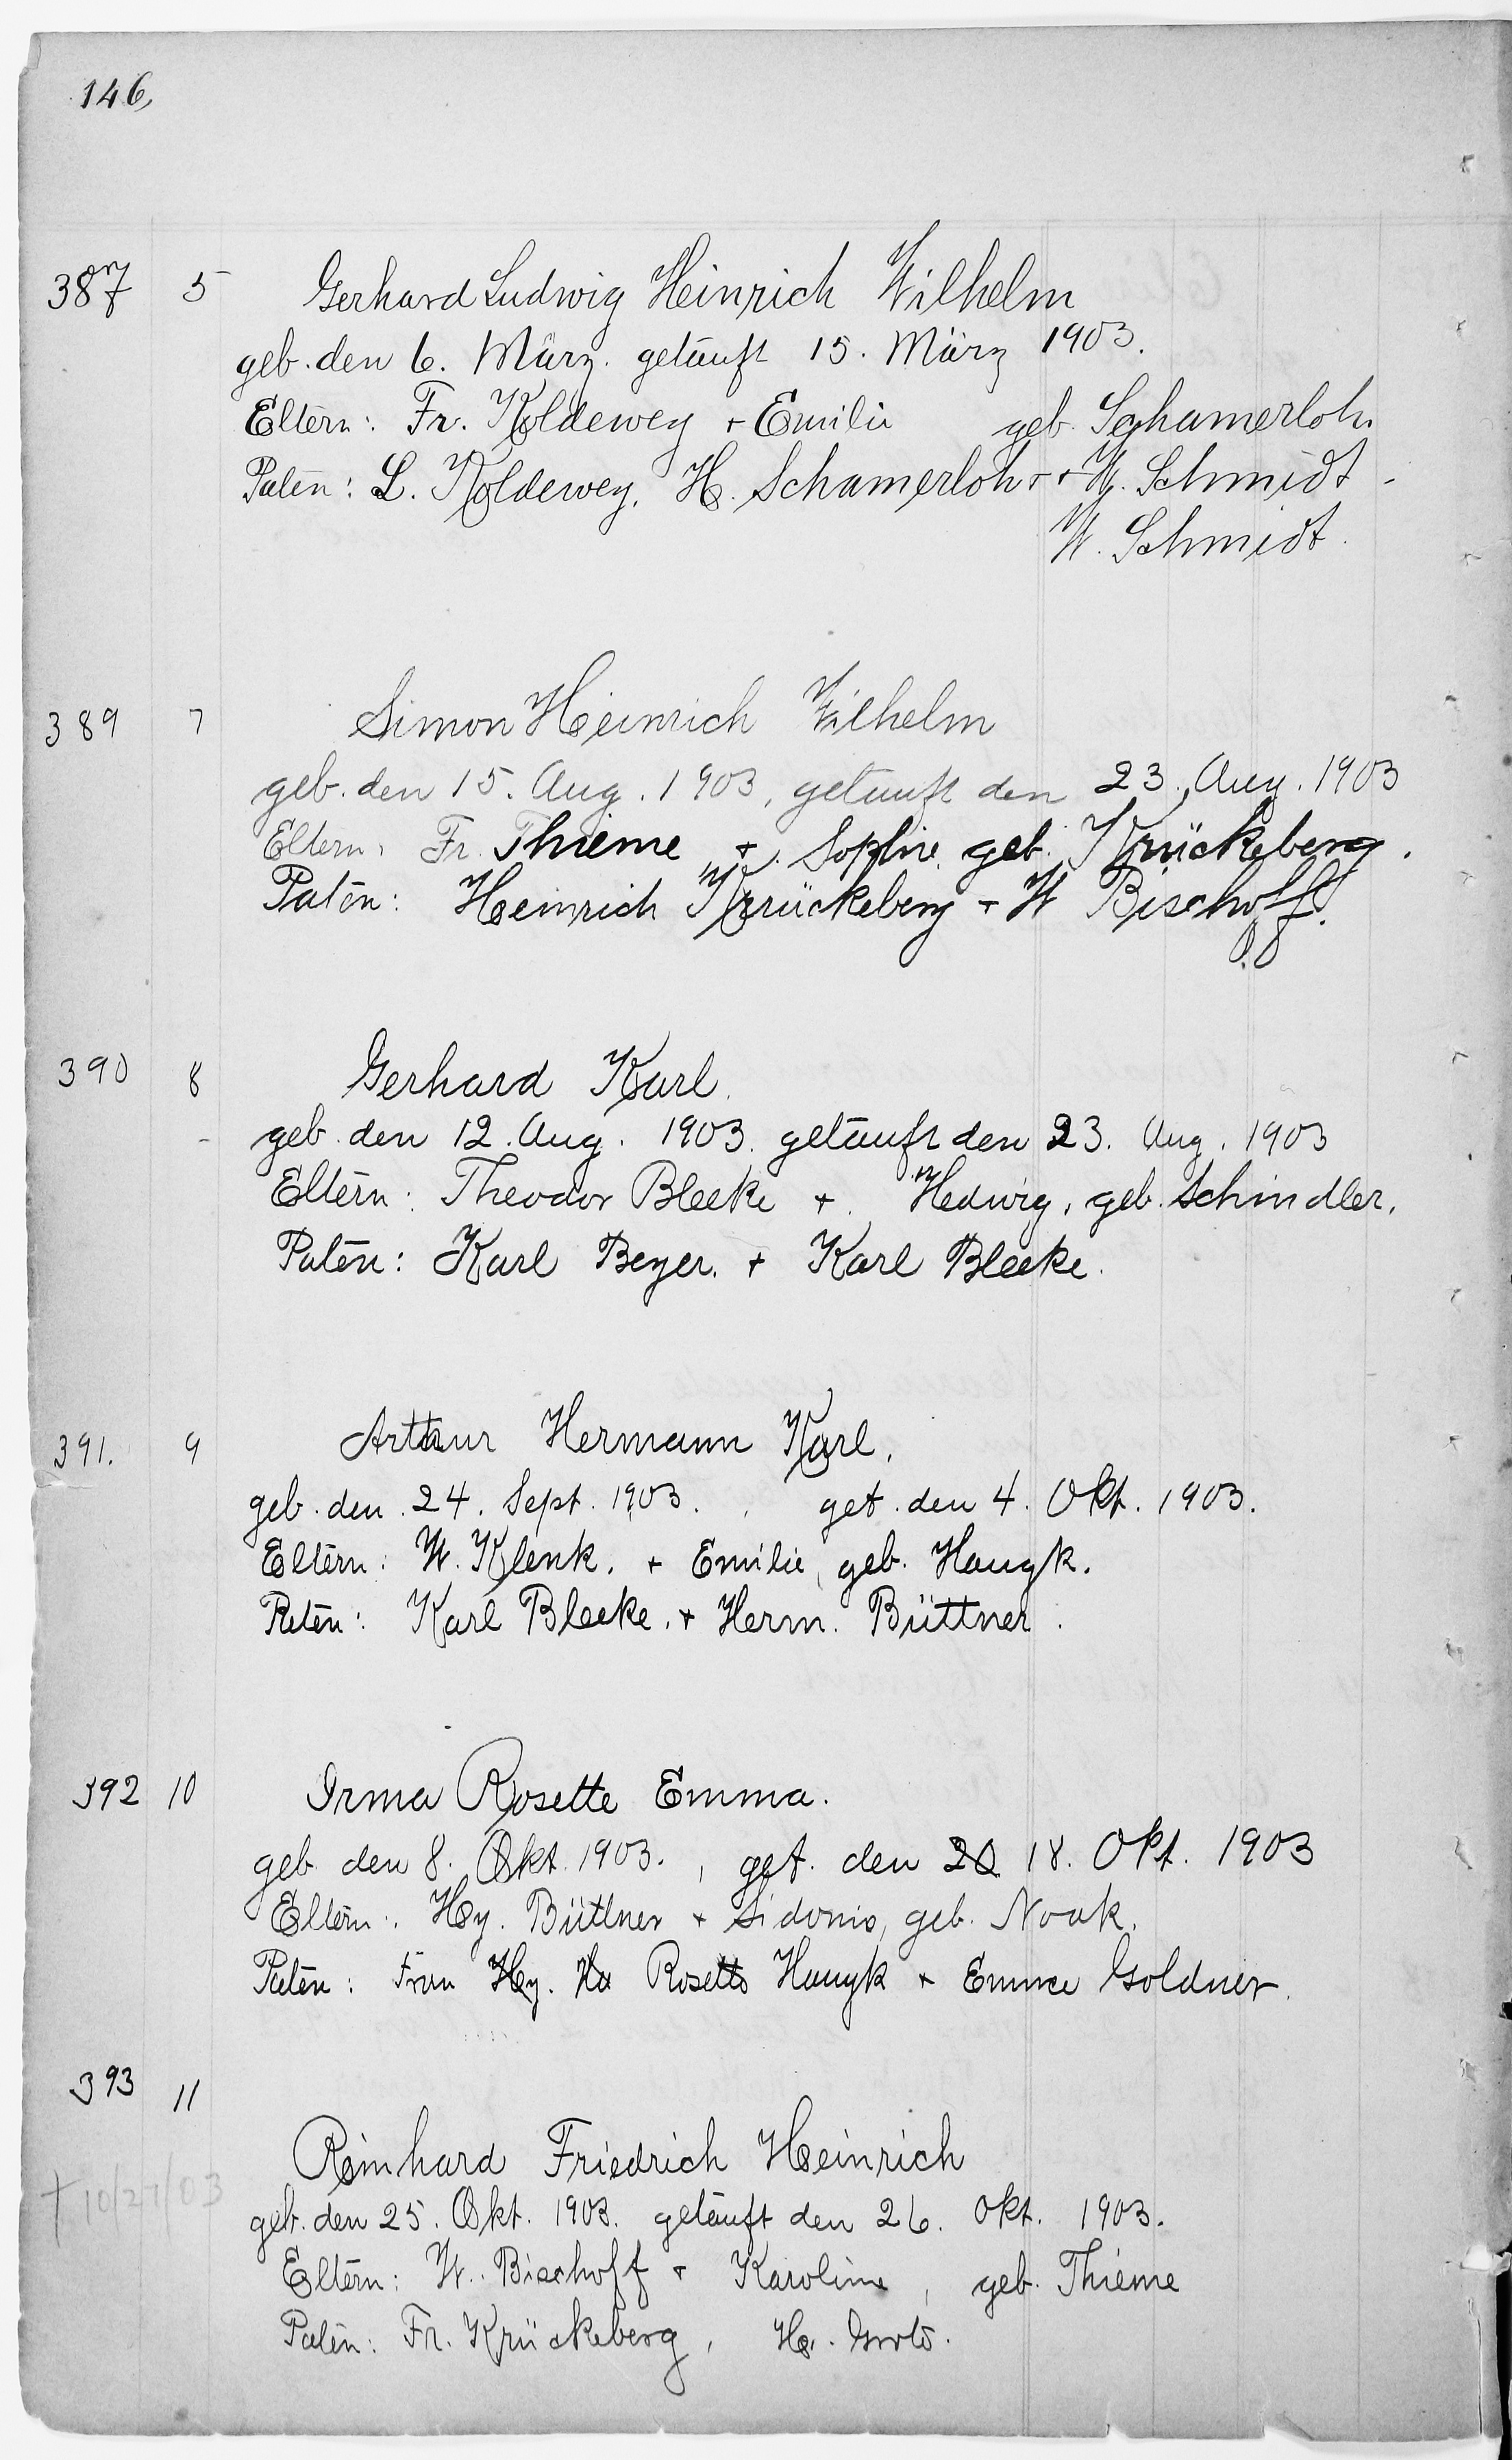 146,
387 5 Gerhard Ludwig Heinrich Wilhelm
geb. den 6. März. getauft 15. März 1903.
Eltern: Fr. Koldewey + Emilie geb. Schamerloh
Paten: L. Koldewey, H. Schamerloh + W. Schmidt
W. Schmidt.
389 7 Simon Heinrich Wilhelm
geb. den 15. Aug. 1903, getauft den 23. Aug. 1903
Eltern, Fr. Thieme + Sophie geb. Krückeberg.
Paten: Heinrich Krückeberg + W Bischoff.
390 8 Gerhard Karl.
geb. den 12. Aug. 1903. getauft den 23. Aug. 1903
Eltern: Theodor Bleeke + Hedwig, geb. Schindler.
Paten: Karl Beyer. + Karl Bleeke.
391. 9 Arthur Hermann Karl.
geb. den 24. Sept. 1903. get. den 4. Okt. 1903.
Eltern: W. Klenk. + Emilie, geb. Haugk.
Paten: Karl Bleeke. + Herm. Büttner.
392 10 Irma Rosette Emma.
geb den 8. Okt. 1903., get. den 20 18. Okt. 1903
Eltern: Hy. Büttner + Sidonie, geb. Noak.
Paten: Frau Hy. Ha Rosette Haugk + Emma Goldner.
393 11
Reinhard Friedrich Heinrich
† 10/27/03
geb. den 25. Okt. 1903. getauft den 26. Okt. 1903.
Eltern: W. Bischoff + Karoline, geb. Thieme
Paten: Fr. Krückeberg, H.